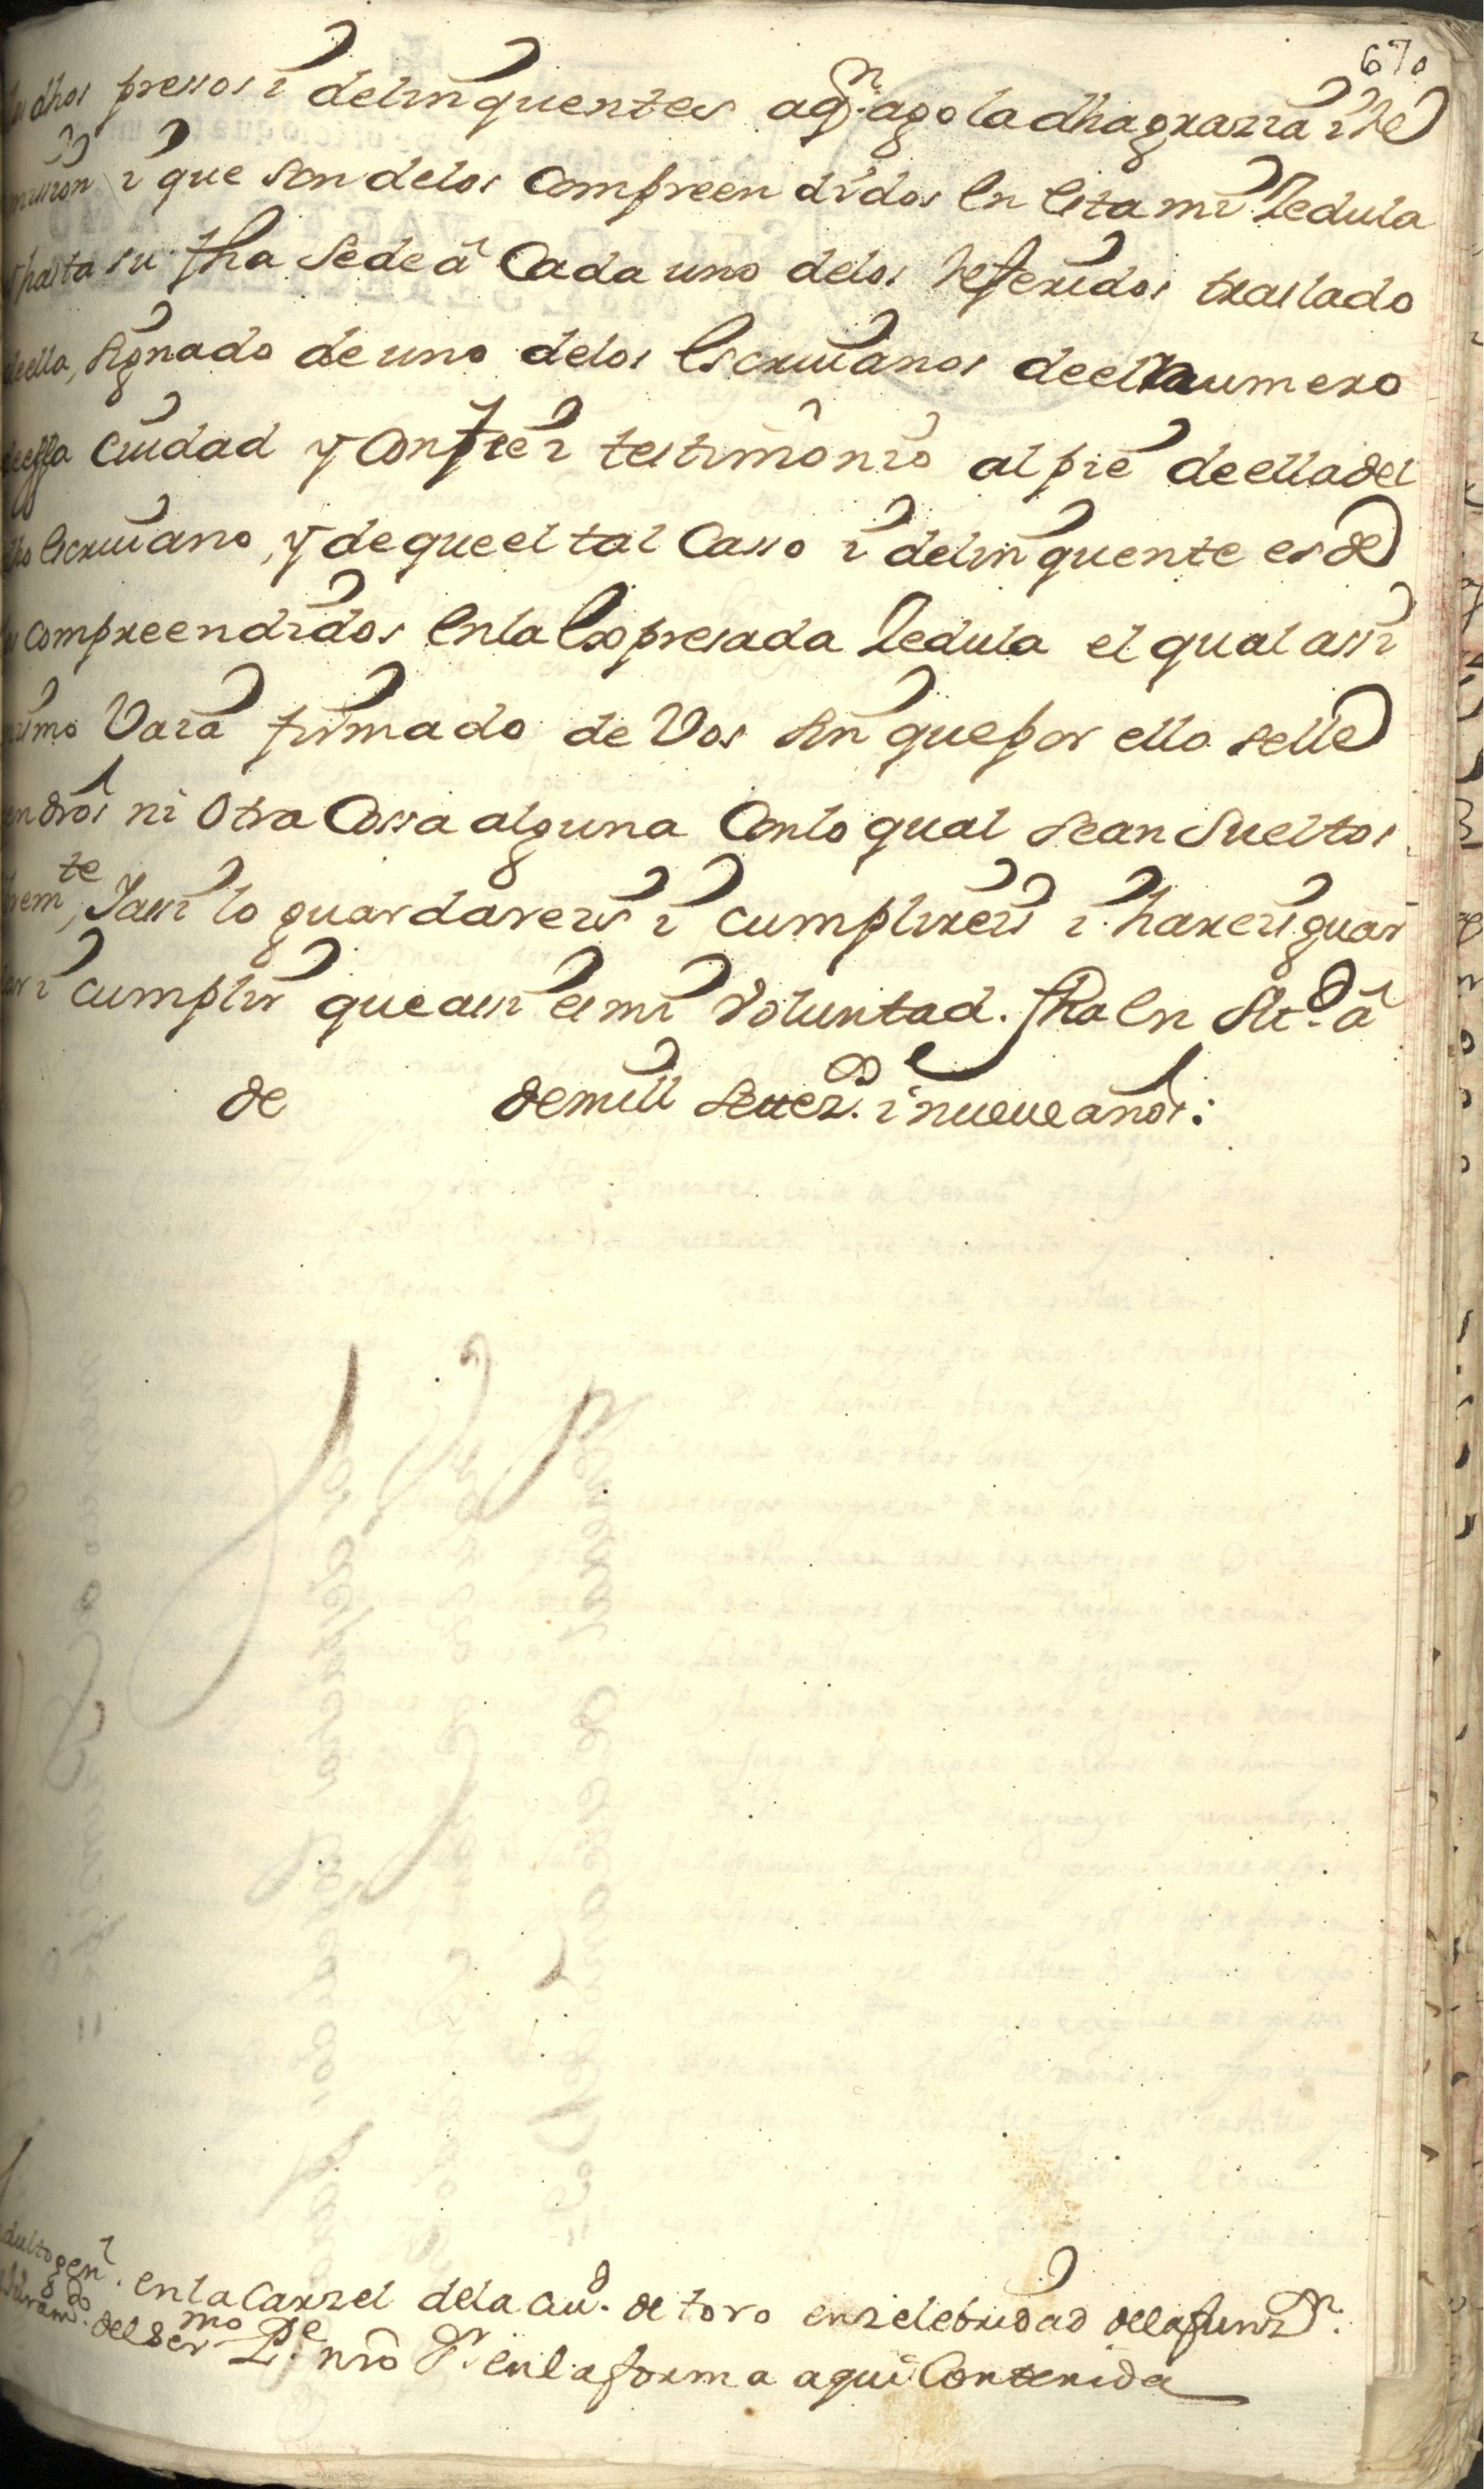 670
dhos pressos i delinquentes aqn. ago la dha grazia i Re
mision i que son de los Compreendidos En Esta mi Zedula
hasta su fha Se de â Cada uno de los Referidos traslado
de ella, Signado de uno de los Escriuanos de el numero
de essa Ciudad y Con fee i testimonio al pie de ella del
dho Escriuano, y de que el tal Casso i delinquente es de
los compreendidos En la Expresada Zedula el qual assi
mismo Vara firmado de Vos sin que por ello se lle
en dros ni Otra Cossa alguna Con lo qual sean Sueltos
te, Iassi lo guardareis i cumplireis i hareis guar
dar i cumplir que assi es mi Voluntad. fha En Md. â
de de mill settezos. i nueue años:
Indulto genl. en la Carzel de la Ciud. de toro en zelebridad de la funzon.
del sermo Pe. nro Sr. en la forma aqui Contenida